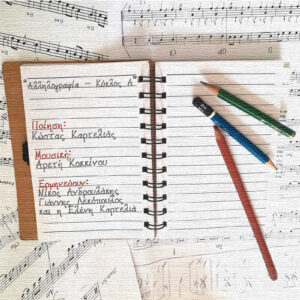 "Αλληλογραφία - Κύκλος Α"
Ποίηση:
Κώστας Καρτελιάς
Μουσική:
Αρετή Κοκκίνου
Ερμηνεύουν:
Νίκος Ανδρουλάκης
Γιάννης Λεκόπουλος
και η Ελένη Καρτελιά